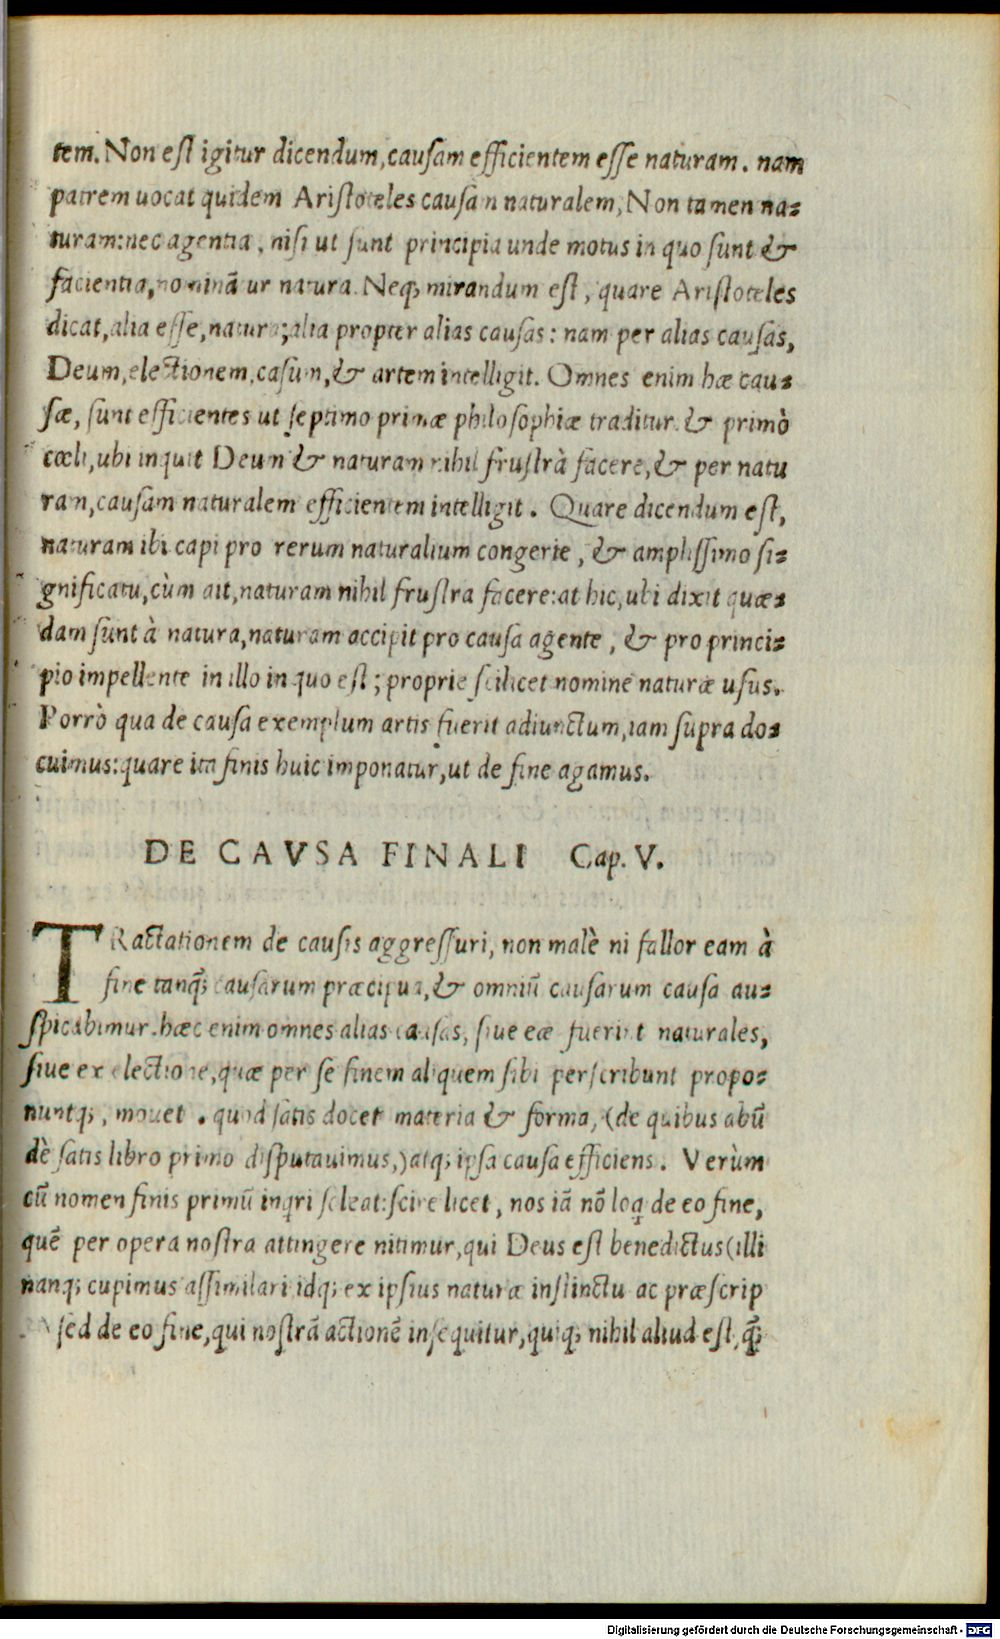 tem. Non est igitur dicendum, causam efficientem esse naturam. nam
patrem uocat quidem Aristoteles causam naturalem, Non tamen na-
turam: nec agentia, nisi ut sunt principia unde motus in quo sunt &
facientia, nominãtur natura. Neq; mirandum est, quare Aristoteles
dicat, alia esse, natura; alia propter alias causas: nam per alias causas,
Deum, electionem, casum, & artem intelligit. Omnes enim hæ cau-
sæ, sunt efficientes ut septimo primæ philosophiæ traditur. & primò
cœli, ubi inquit Deum & naturam nihil frustrà facere, & per natu
ram, causam naturalem efficientem intelligit. Quare dicendum est,
naturam ibi capi pro rerum naturalium congerie, & amplissimo si-
gnificatu, cùm ait, naturam nihil frustra facere: at hic, ubi dixit quæ-
dam sunt à natura, naturam accipit pro causa agente, & pro princi-
pio impellente in illo in quo est; proprie scilicet nomine naturæ usus.
Porrò qua de causa exemplum artis fuerit adiunctum, iam supra do-
cuimus: quare ita finis huic imponatur, ut de fine agamus.
DE CAVSA FINALI Cap. V.
TRactationem de causis aggressuri, non malè ni fallor eam à
fine tanq̃; causarum præcipua, & omniũ causarum causa au-
spicabimur. hæc enim omnes alias causas, siue eæ fuerint naturales,
siue ex electione, quæ per se finem aliquem sibi perscribunt propo-
nuntq;, mouet. quod satis docet materia & forma, (de quibus abũ
dè satis libro primo disputauimus,) atq; ipsa causa efficiens. Verùm
cũ nomen finis primũ inqri soleat: scire licet, nos iã nõ loq de eo fine,
quẽ per opera nostra attingere nitimur, qui Deus est benedictus (illi
nanq; cupimus assimilari idq; ex ipsius naturæ instinctu ac præscrip
sed de eo fine, qui nostrã actionẽ insequitur, quiq; nihil aliud est, q̃;
Digitalisierung gefördert durch die Deutsche Forschungsgemeinschaft - DFG